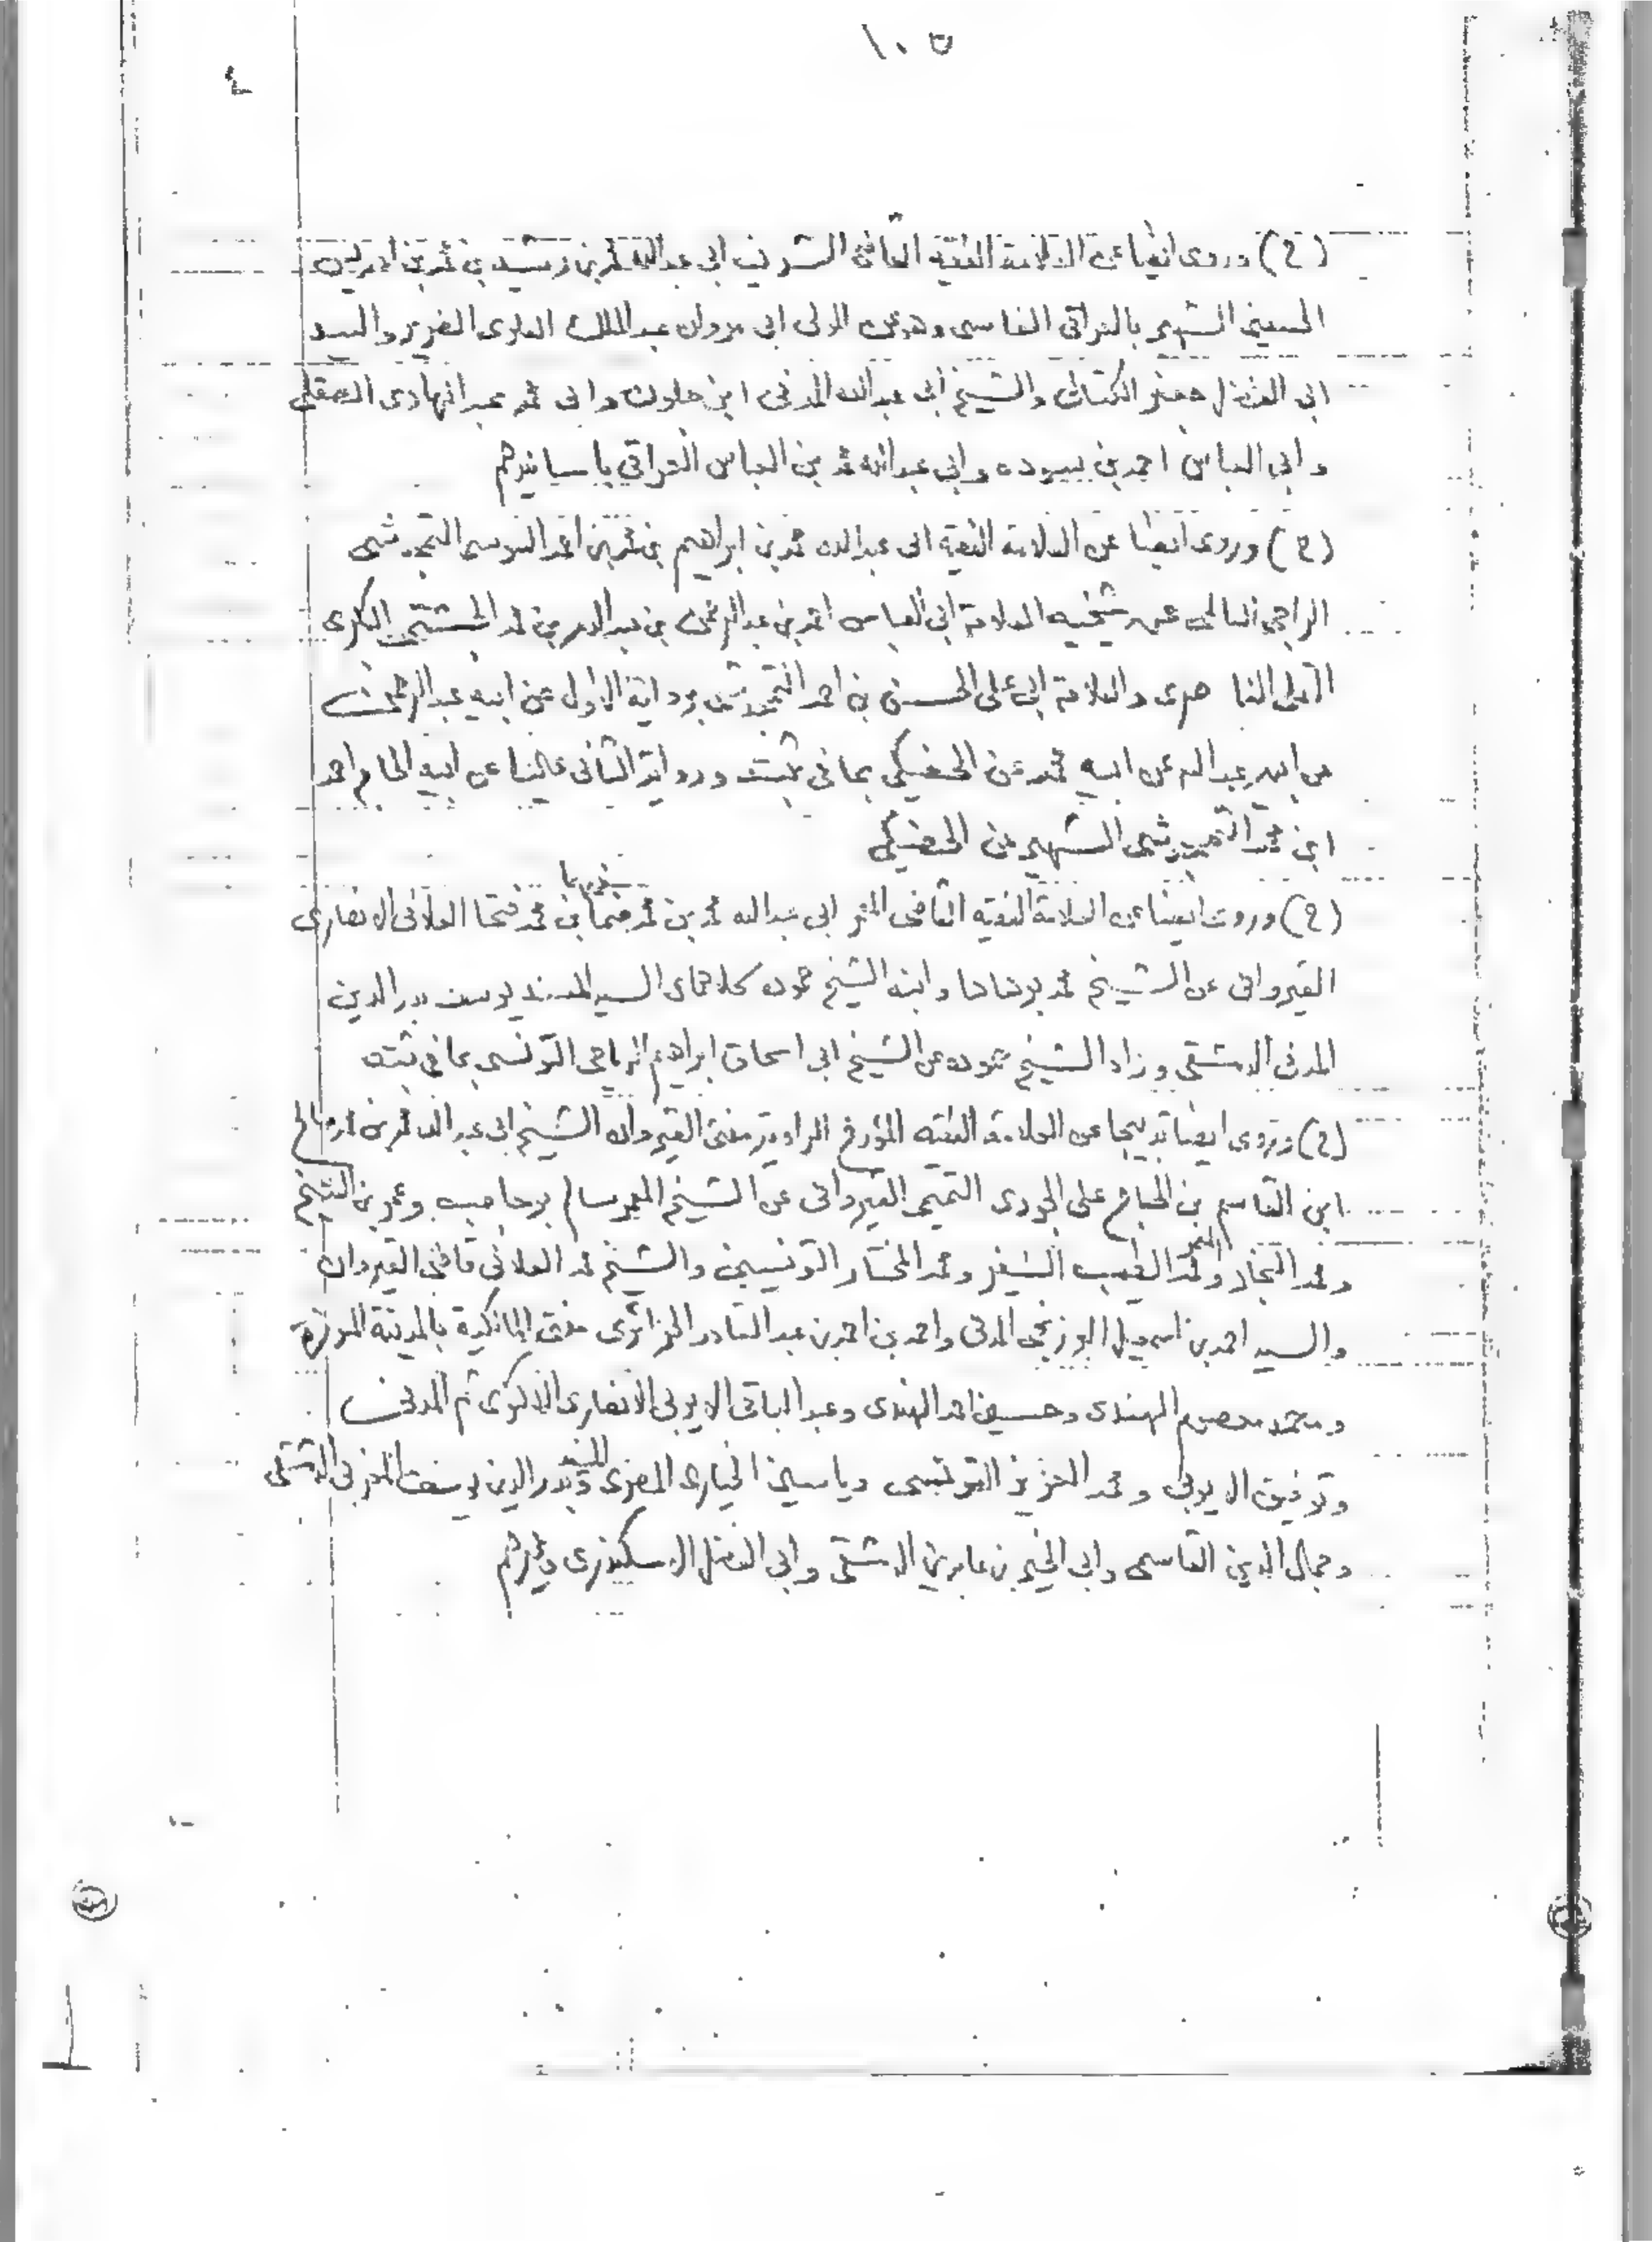 ١٠٥
(ح) وروى ايضا عن العلامة الفقيه القاضى الشريف ابى عبد الله محمد بن رشيد بن محمد بن ادريس
الحسينى الشهير بالعراقى الفاسى وهو عن المولى ابى مروان عبد الملك العلوى الضرير والسيد
ابى الفضل جعفر الكتانى والشيخ ابى عبد الله المدنى ابن جلون وابى محمد عبد الهادى الصقلى
وابى العباس احمد بن سوده وابى عبد الله محمد بن العباس العراقى باسانيدهم
(ح) وروى ايضا عن العلامة الفقيه ابى عبد الله محمد بن ابراهيم بن محمد بن احمد السوسى التمجدشتى
عن شيخيه العلامة ابى العباس احمد بن عبد الرحمن بن عبد الله بن محمد الجشتيمى البكرى
والعلامة ابى على الحسن بن احمد التمجدشتى برواية الاول عن ابيه عبد الرحمن
عن ابيه عبد الله عن ابيه محمد عن الحضيكى بما فى ثبته ورواية الثانى عاليا عن ابيه احمد
ابن محمد التمجدشتى الشهير عن الحضيكى
(ح) وروى ايضا عن العلامة الفقيه القاضى المعمر ابى عبد الله محمد بن محمد ضما بن محمد فتحا العلانى الانصارى
القيروانى عن الشيخ محمد بوهاها وابنه الشيخ حموده كلاهما السيد المسند يوسف بدر الدين
المدنى الدمشقى وزاد الشيخ حموده عن الشيخ ابى اسحاق ابراهيم الرياحى التونسى بما فى ثبته
(ح) وروى ايضا تدبيجا عن العلامة الفقيه المؤرخ الراوية مفتى القيروان الشيخ ابى عبد الله محمد بن محمد صالح
ابن القاسم بن الحاج على الجودى التميمى القيروانى عن الشيخ المعمر سالم بوحاجب وعمر بن الشيخ
ومحمد النجار ومحمد الطيب النيفر ومحمد المختار التونسيين والشيخ محمد العلانى قاضى القيروان
والسيد احمد بن اسمعيل البرزنجى المدنى واحمد بن احمد بن عبد القادر الجزائرى مفتى المالكية بالمدينة المنورة
ومحمد معصوم الهندى وحسين احمد الهندى وعبد الباقى الايوبى الانصارى اللكنوى ثم المدنى
وتوفيق الايوبى ومحمد العزيز التونسى وياسين الخيارى المصرى وبدر الدين يوسف المغربى الدمشقى
وجمال الدين القاسمى وابى الخير بن عابدين الدمشقى وابى الفضل الاسكندرى وغيرهم